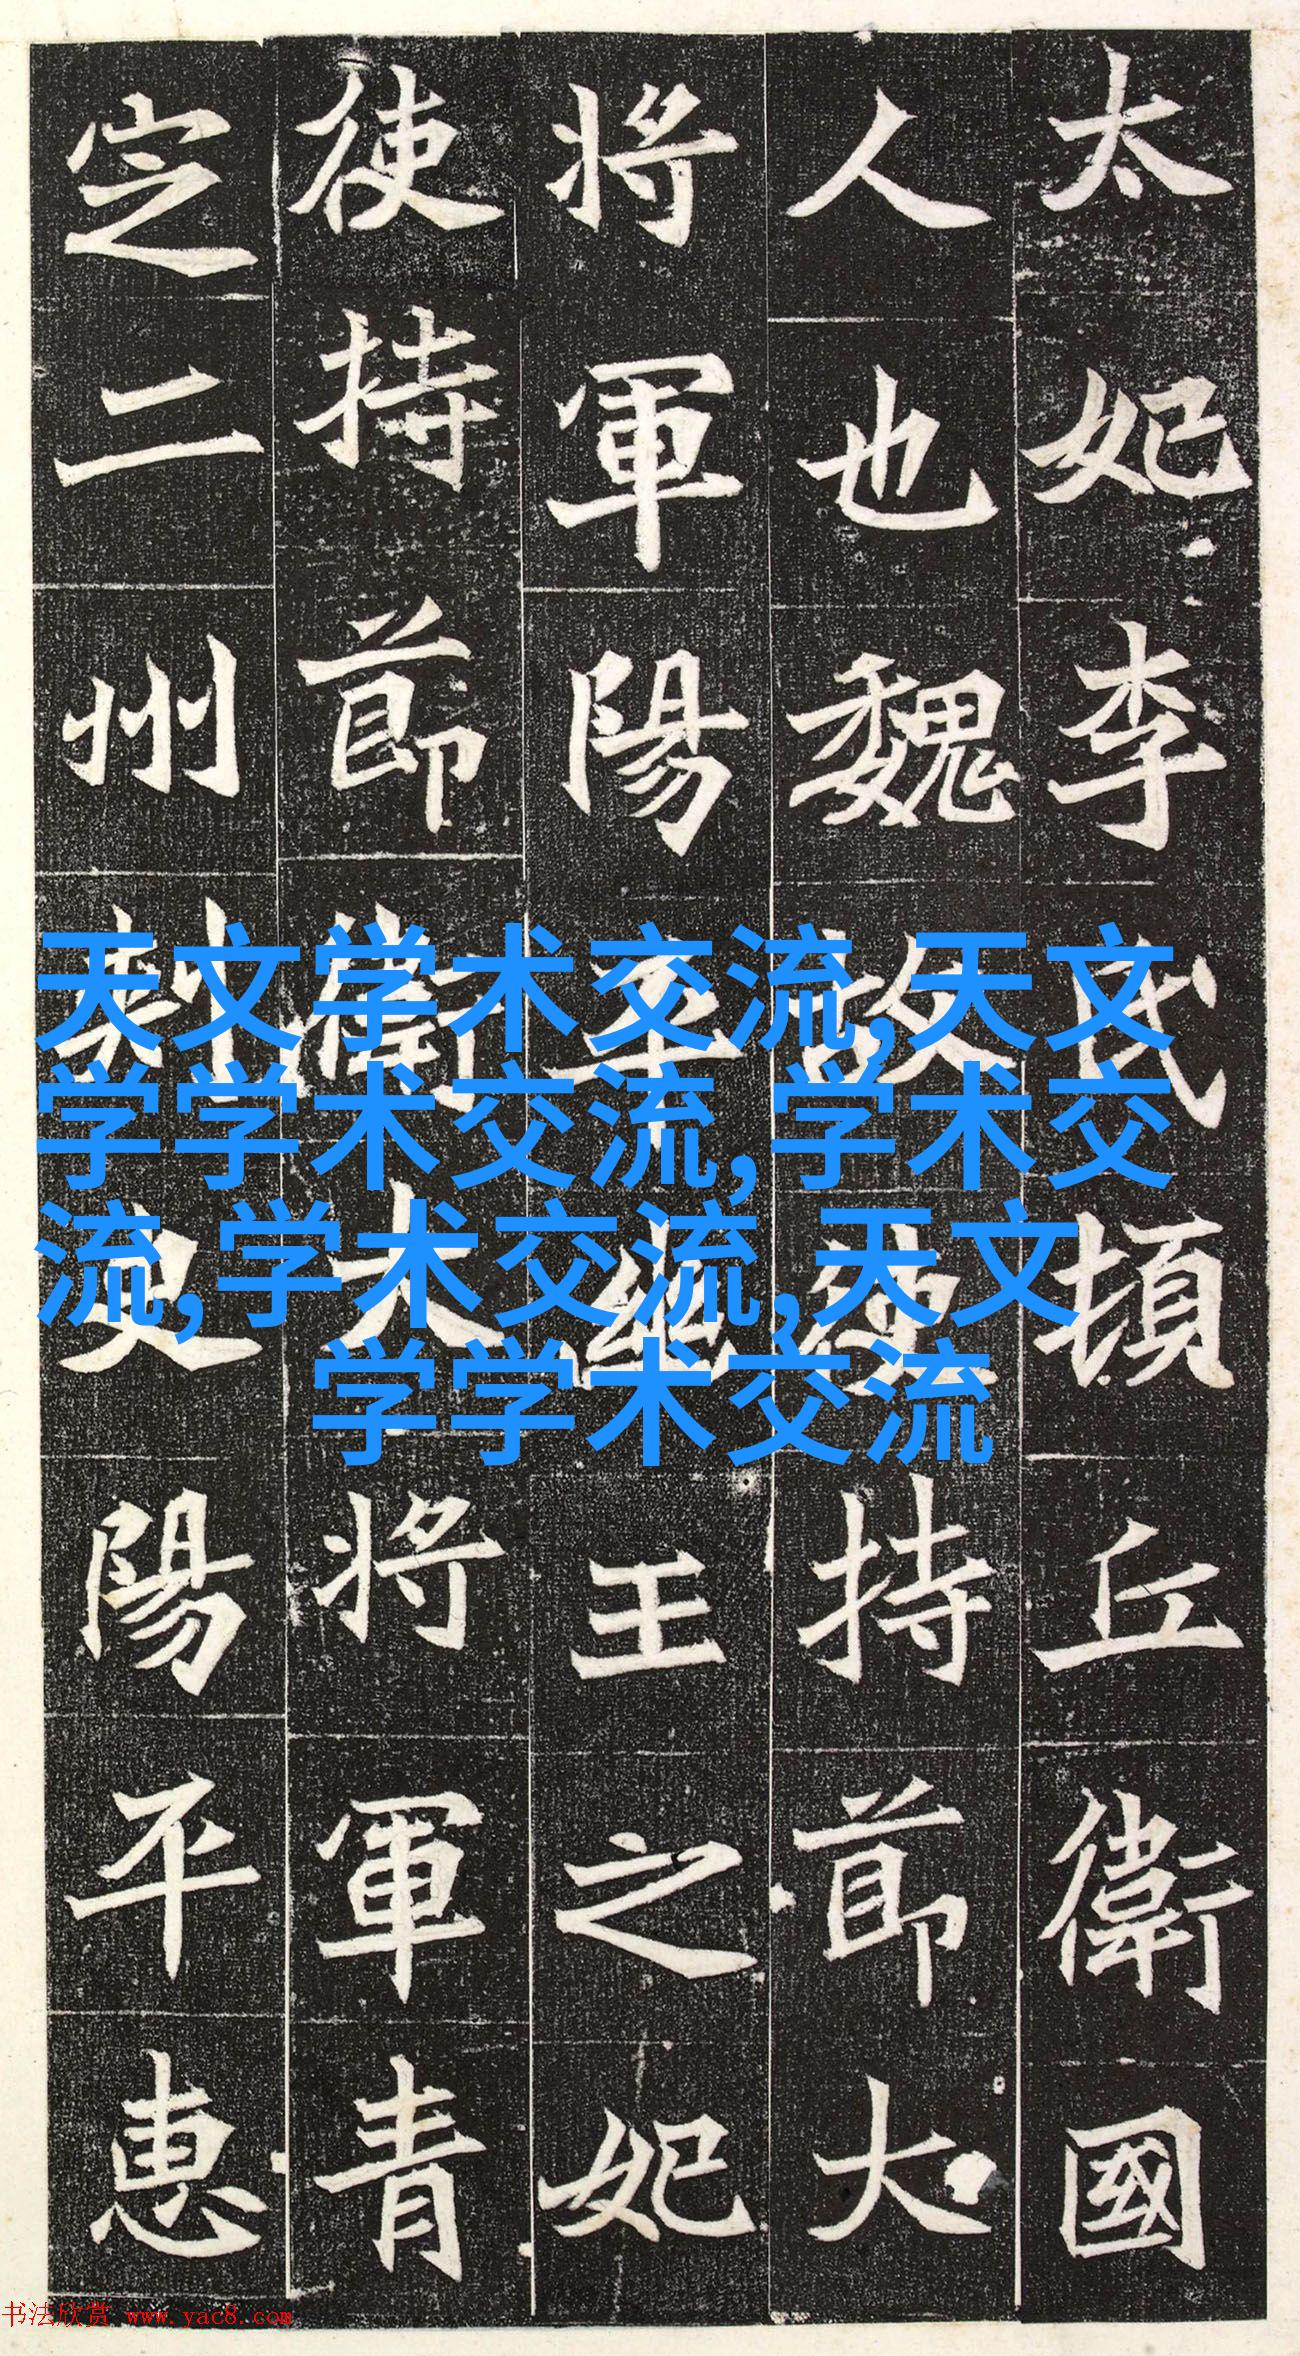 太妃李氏頓丘衛國
人也魏故使持節大
將軍陽平幽王之妃
使持節衛大將軍青
定二州刺史陽平惠
天文学术交流,天文
学学术交流,学术交
流,学术交流,天文
学学术交流
书法欣赏 www.yac8.com